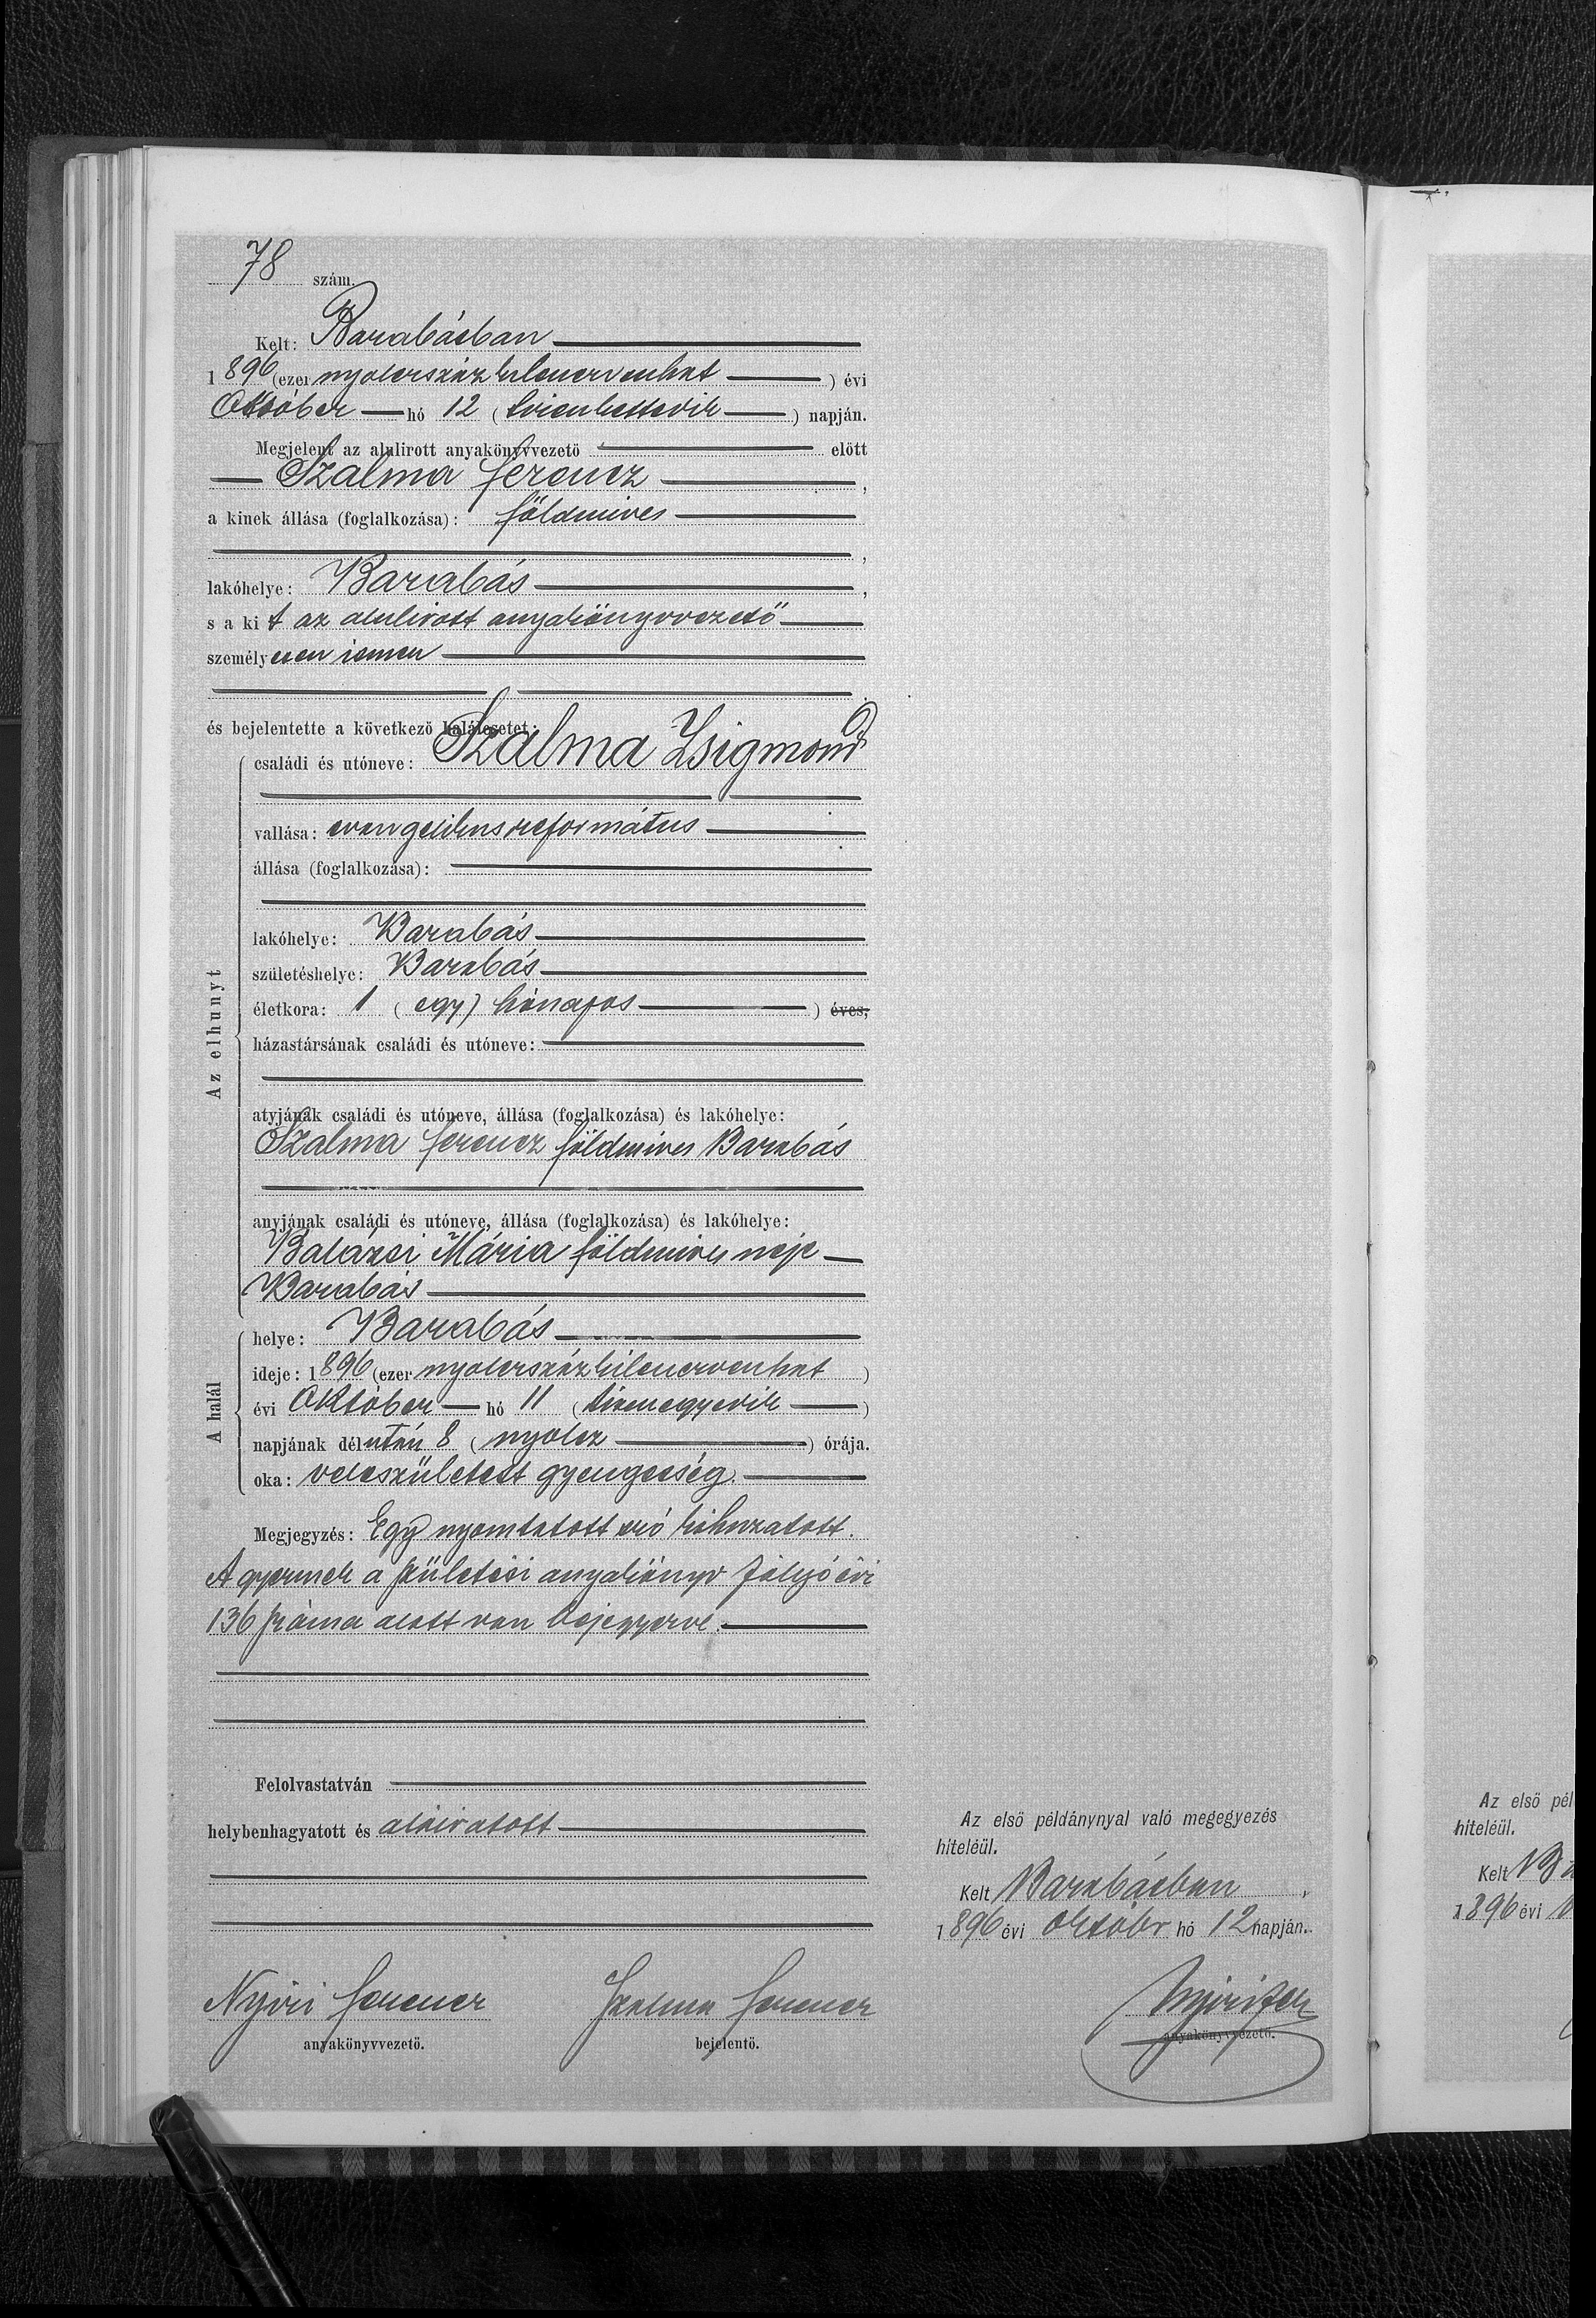 78 szám.
Kelt: Barabásban
1896 (ezer nyolczszázkilenczvenhat) évi
Október hó 12 (tizenkettedik) napján.
Megjelent az alulirott anyakönyvvezető előtt
Szalma Ferencz,
a kinek állása (foglalkozása): földmives
,
lakóhelye: Barabás,
s a kit az alulirott anyakönyvvezető
személyesen ismer
és bejelentette a következő halálesetet:
Az elhunyt
családi és utóneve: Szalma Zsigmond
vallása: evangelikus református
állása (foglalkozása):
lakóhelye: Barabás
születéshelye: Barabás
életkora: 1 (egy) hónapos ) éves;
házastársának családi és utóneve:
atyjának családi és utóneve, állása (foglalkozása) és lakóhelye:
Szalma Ferencz földmives Barabás
anyjának családi és utóneve, állása (foglalkozása) és lakóhelye:
Balázsi Mária földmives neje
Barabás
A halál
helye: Barabás
ideje: 1896 (ezer nyolczszázkilenczvenhat)
évi Október hó 11 (tizenegyedik)
napjának délután 8 (nyolcz) órája.
oka: veleszületett gyengeség.
Megjegyzés: Egy nyomtatott szó kihuzatott.
A gyermek a születési anyakönyv folyó évi
136 száma alatt van bejegyezve.
Felolvastatván
helybenhagyatott és aláiratott
Az első példánynyal való megegyezés
hiteléül.
Kelt Barabásban,
1896 évi október hó 12 napján.
Nyiri Ferencz Szalma Ferencz Nyiri Fer
anyakönyvvezető. bejelentő. anyakönyvvezető.
Az első pél
hiteléül.
Kelt Ba
1896 évi